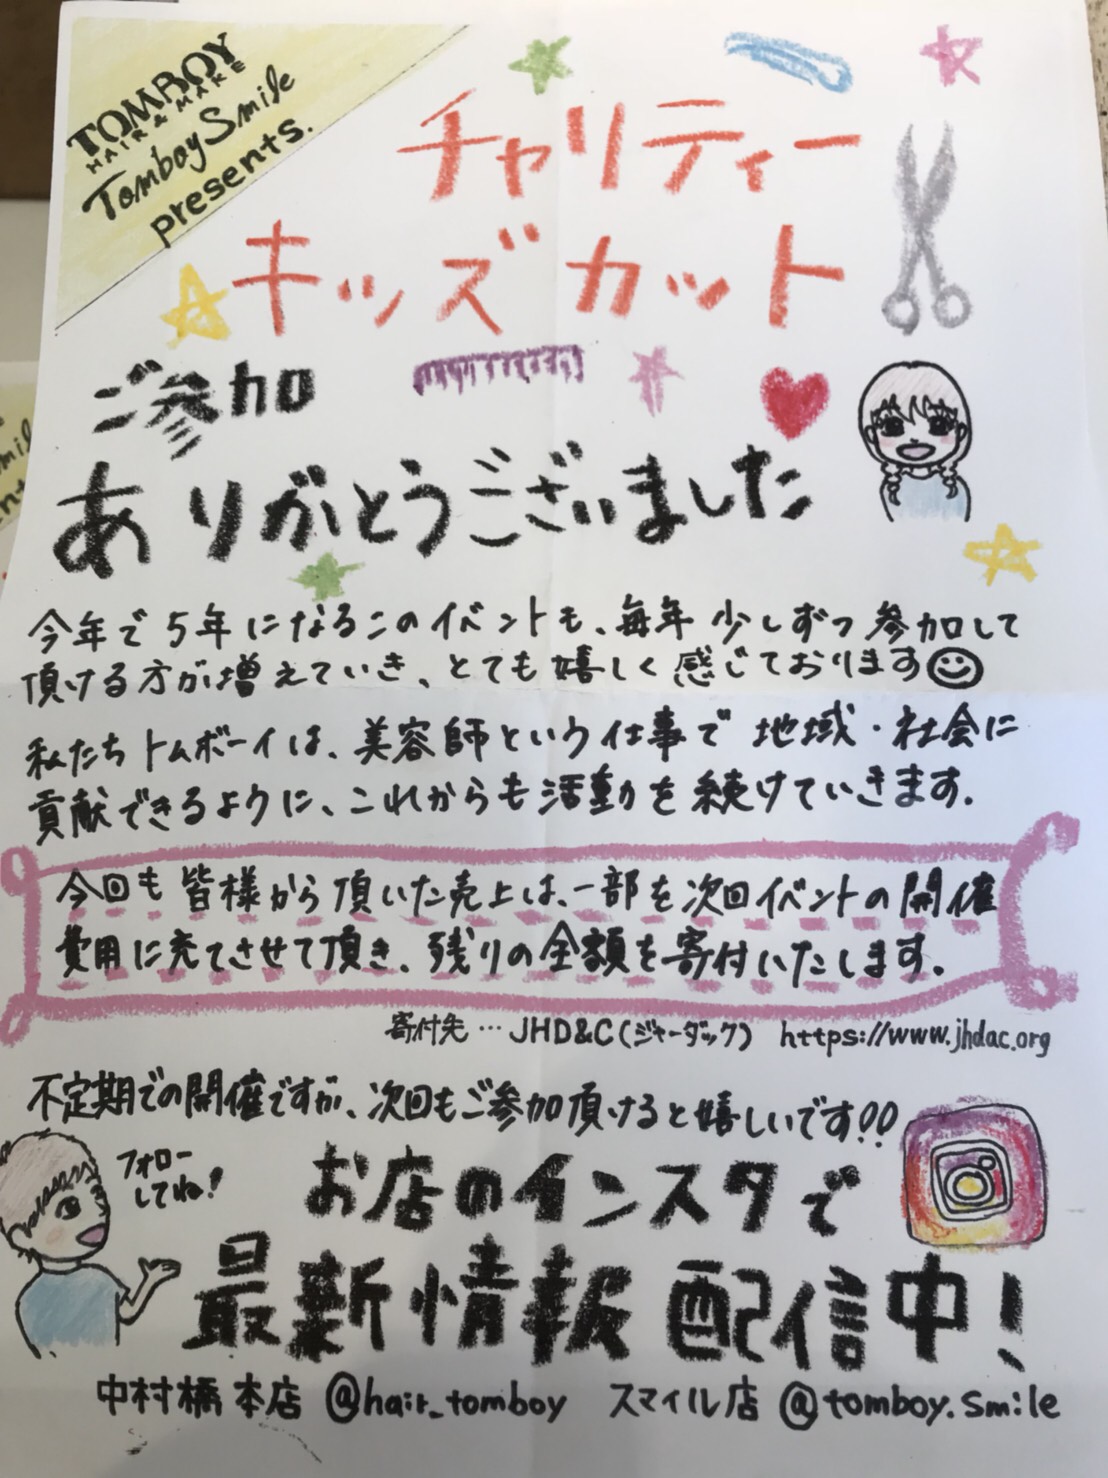 TOMBOY
HAIR & MAKE
Tomboy Smile
presents.
チャリティー
キッズカット
ご参加
ありがとうございました
今年で5年になるこのイベントも、毎年少しずつ参加して
頂ける方が増えていき、とても嬉しく感じております
私たちトムボーイは、美容師という仕事で地域・社会に
貢献できるように、これからも活動を続けていきます.
今回も皆様から頂いた売上は、一部を次回イベントの開催
費用に充てさせて頂き、残りの全額を寄付いたします.
寄付先…JHD&C(ジャーダック) https://www.jhdac.org
不定期での開催ですが、次回もご参加頂けると嬉しいです!!
フォロー
してね!
お店のインスタで
最新情報配信中!
中村橋本店 @hair_tomboy スマイル店 @tomboy.smile